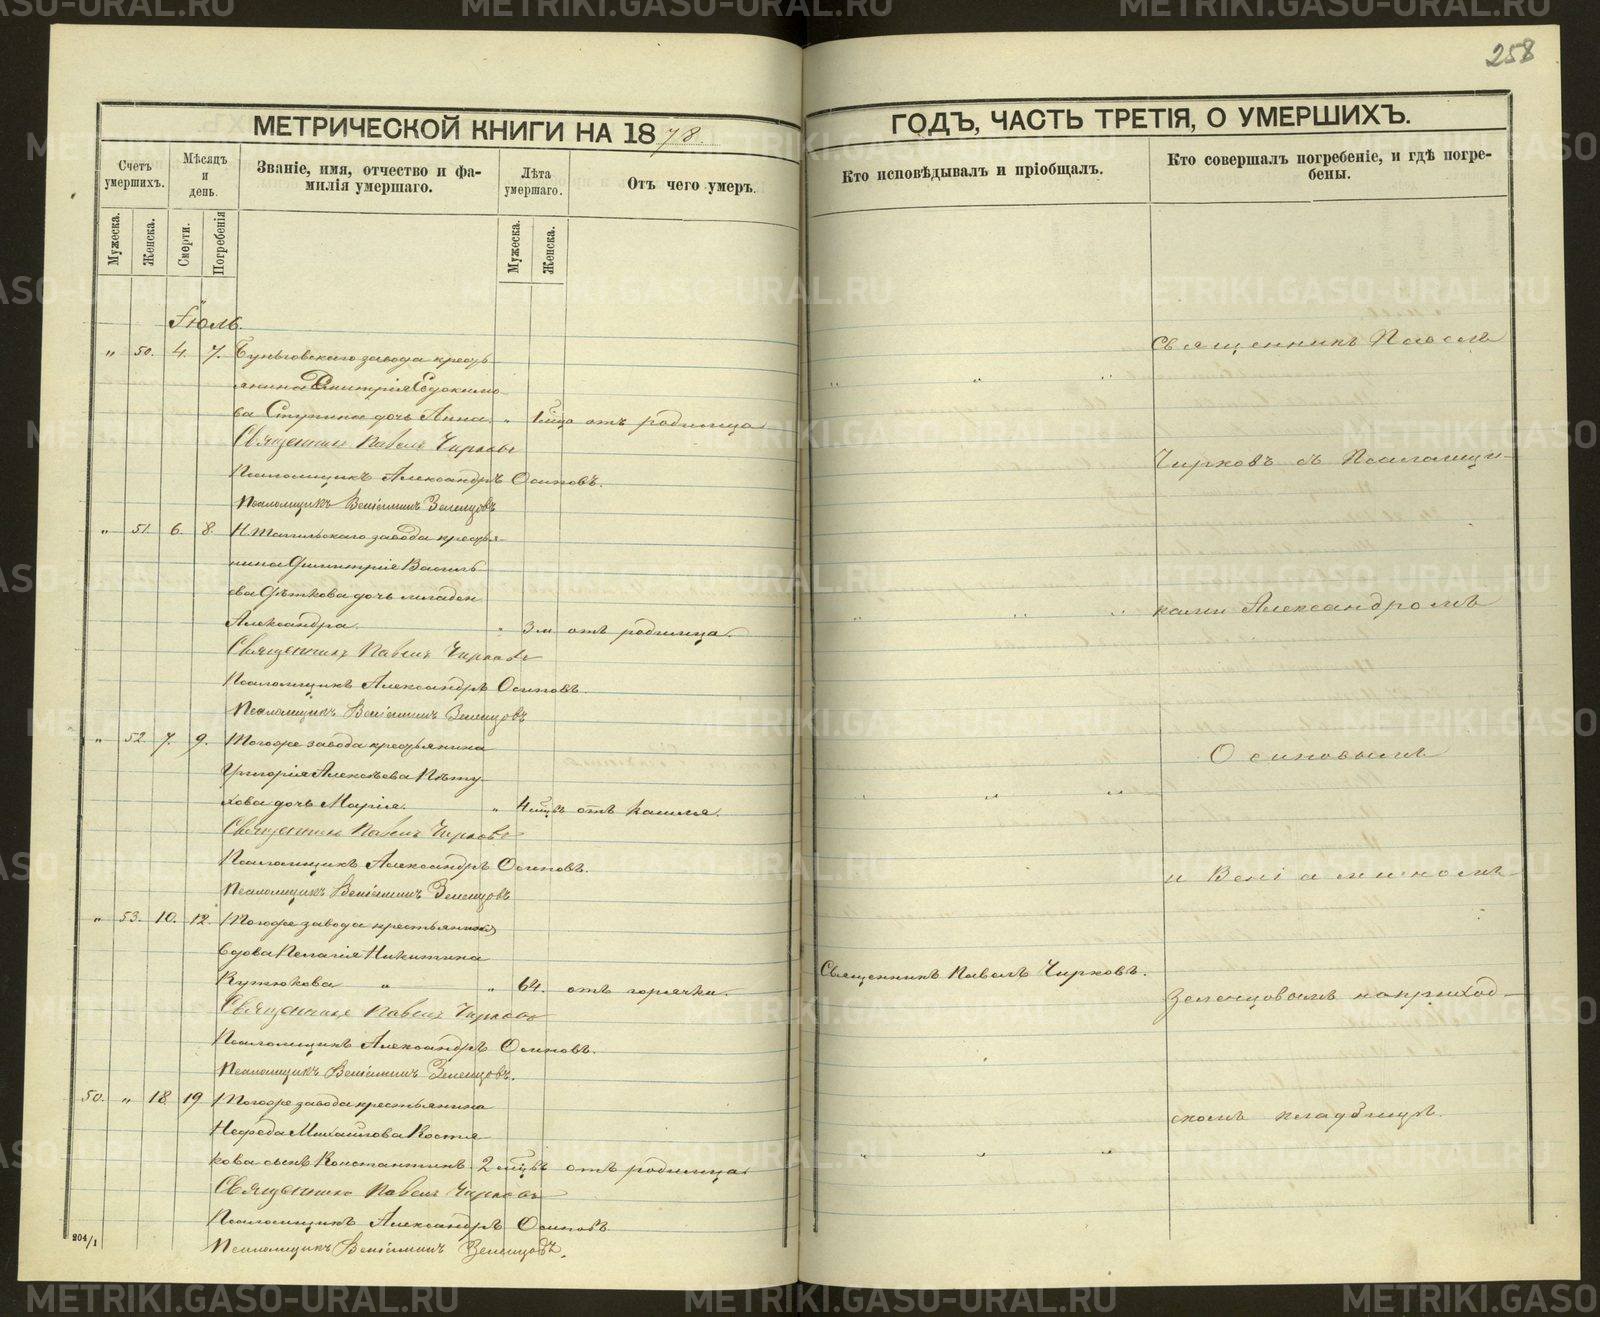 258
МЕТРИЧЕСКОЙ КНИГИ НА 1878.
ГОДЪ, ЧАСТЬ ТРЕТІЯ, О УМЕРШИХЪ.
Счетъ умершихъ.
Мѣсяцъ и день.
Званіе, имя, отчество и фамилія умершаго.
Лѣта умершаго.
Отъ чего умеръ.
Кто исповѣдывалъ и пріобщалъ.
Кто совершалъ погребеніе, и гдѣ погребены.
Мужеска.
Женска.
Смерти.
Погребенія
Мужеска.
Женска.
Іюль.
" 50. 4. 7. Быньговскаго завода кресть
янина Димитрія Евдокимо
ва Ступина дочь Анна. " 1 мѣца отъ родимца
Священникъ Павелъ Чирковъ
Псаломщикъ Александръ Осиповъ.
Псаломщикъ Веніаминъ Зеленцовъ
" 51. 6. 8. Н. Тагильскаго завода крестья
нина Димитрія Василь
ева дочь младен.
Александра. " 3 м отъ родимца.
Священникъ Павелъ Чирковъ
Псаломщикъ Александръ Осиповъ.
Псаломщикъ Веніаминъ Зеленцовъ
" 52. 7. 9. Тогоже завода крестьянина
Григорія Алексѣева Пѣту
хова дочь Марія. " 4 мѣцъ отъ кашля.
Священникъ Павелъ Чирковъ
Псаломщикъ Александръ Осиповъ.
Псаломщикъ Веніаминъ Зеленцовъ
" 53. 10. 12. Тогоже завода крестьянина
вдова Пелагія Никитина
" " 64. отъ горячки.
Священникъ Павелъ Чирковъ
Псаломщикъ Александръ Осиповъ.
Псаломщикъ Веніаминъ Зеленцовъ.
50. " 18 19 Тогоже завода крестьянина
Нефеда Михайлова Костя
кова сынъ Константинъ 2 мѣцъ отъ родимца
Священникъ Павелъ Чирковъ
Псаломщикъ Александръ Осиповъ.
Псаломщикъ Веніаминъ Зеленцовъ.
204/1
Священникъ Павелъ Чирковъ.
Священникъ Павелъ
Чирковъ съ Псаломщи-
ками Александромъ
Осиповымъ
и Веніаминомъ
Зеленцовымъ на приход-
скомъ кладбищѣ.
METRIKI.GASO-URAL.RU